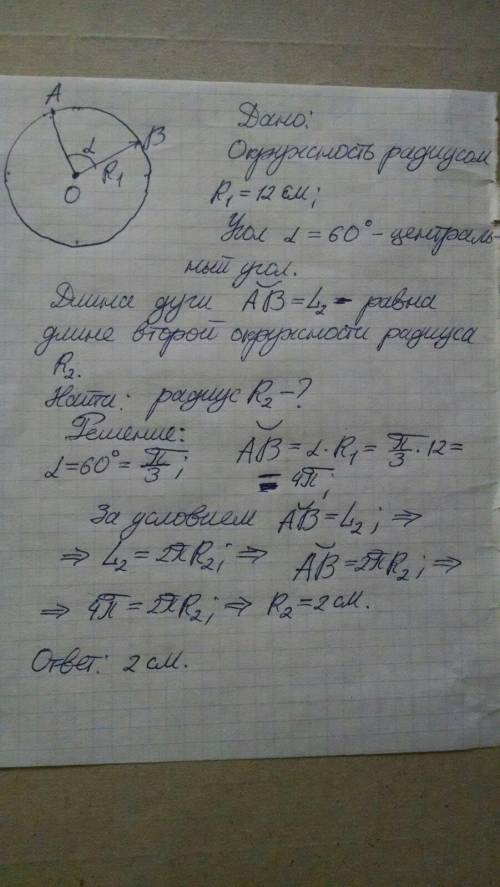 A
B
α
R₁
O
Дано:
Окружность радиусом
R₁ = 12 см;
Угол α = 60° - централь-
ный угол.
Длина дуги A͝B = L₂ - равна
длине второй окружности радиуса
R₂.
Найти: радиус R₂ - ?
Решение:
α = 60° = π/3; A͝B = α · R₁ = π/3 · 12 =
= 4π;
За условием A͝B = L₂; ⇒
⇒ L₂ = 2πR₂; ⇒ A͝B = 2πR₂; ⇒
⇒ 4π = 2πR₂; ⇒ R₂ = 2 см.
Ответ: 2 см.